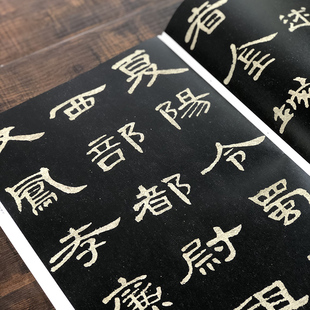 述
者金城
夏陽令蜀
西部都尉祖
父鳳孝廉